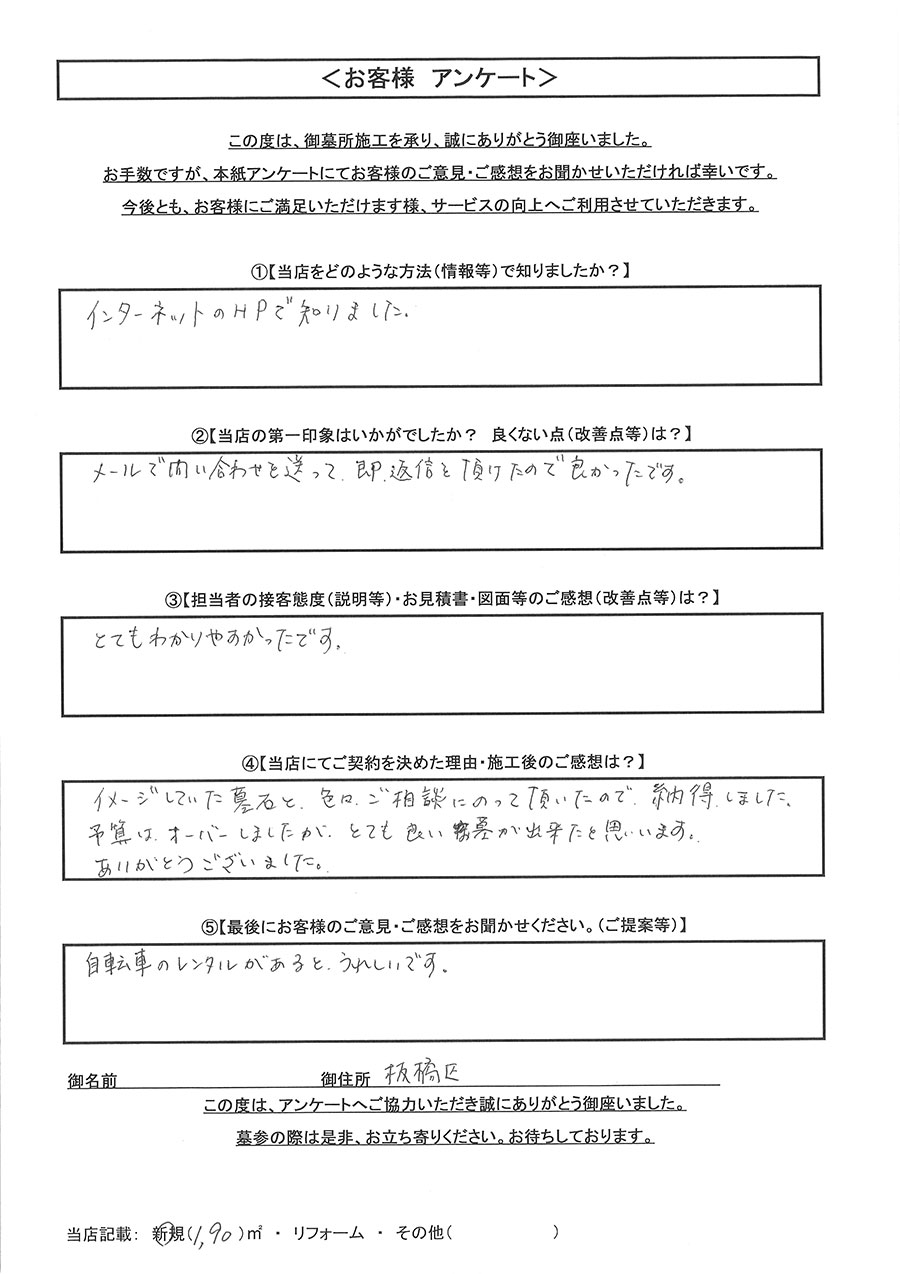 ＜お客様　アンケート＞
この度は、御墓所施工を承り、誠にありがとう御座いました。
お手数ですが、本紙アンケートにてお客様のご意見・ご感想をお聞かせいただければ幸いです。
今後とも、お客様にご満足いただけます様、サービスの向上へご利用させていただきます。
①【当店をどのような方法（情報等）で知りましたか？】
インターネットのHPで知りました。
②【当店の第一印象はいかがでしたか？　良くない点（改善点等）は？】
メールで問い合わせを送って、即、返信を頂けたので良かったです。
③【担当者の接客態度（説明等）・お見積書・図面等のご感想（改善点等）は？】
とてもわかりやすかったです。
④【当店にてご契約を決めた理由・施工後のご感想は？】
イメージしていた墓石と、色々、ご相談にのって頂いたので、納得しました。
予算は、オーバーしましたが、とても良い墓が出来たと思います。
ありがとうございました。
⑤【最後にお客様のご意見・ご感想をお聞かせください。（ご提案等）】
自転車のレンタルがあると、うれしいです。
御名前　御住所　板橋区
この度は、アンケートへご協力いただき誠にありがとう御座いました。
墓参の際は是非、お立ち寄りください。お待ちしております。
当店記載：　新規（1,90）㎡　・　リフォーム　・　その他（　　　　　）